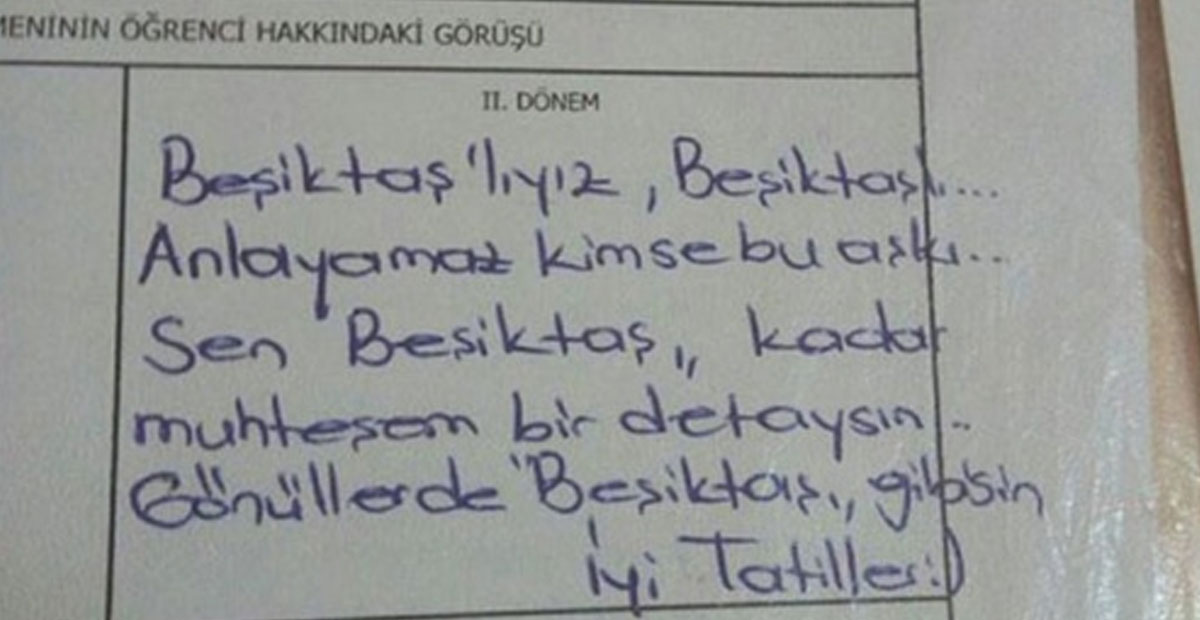 MENİNİN ÖĞRENCİ HAKKINDAKİ GÖRÜŞÜ
II. DÖNEM
Beşiktaş'lıyız, Beşiktaşlı....
Anlayamaz kimse bu aşkı...
Sen "Beşiktaş,, kadar
muhteşem bir detaysın...
Gönüllerde "Beşiktaş,, gibisin
İyi Tatiller:)